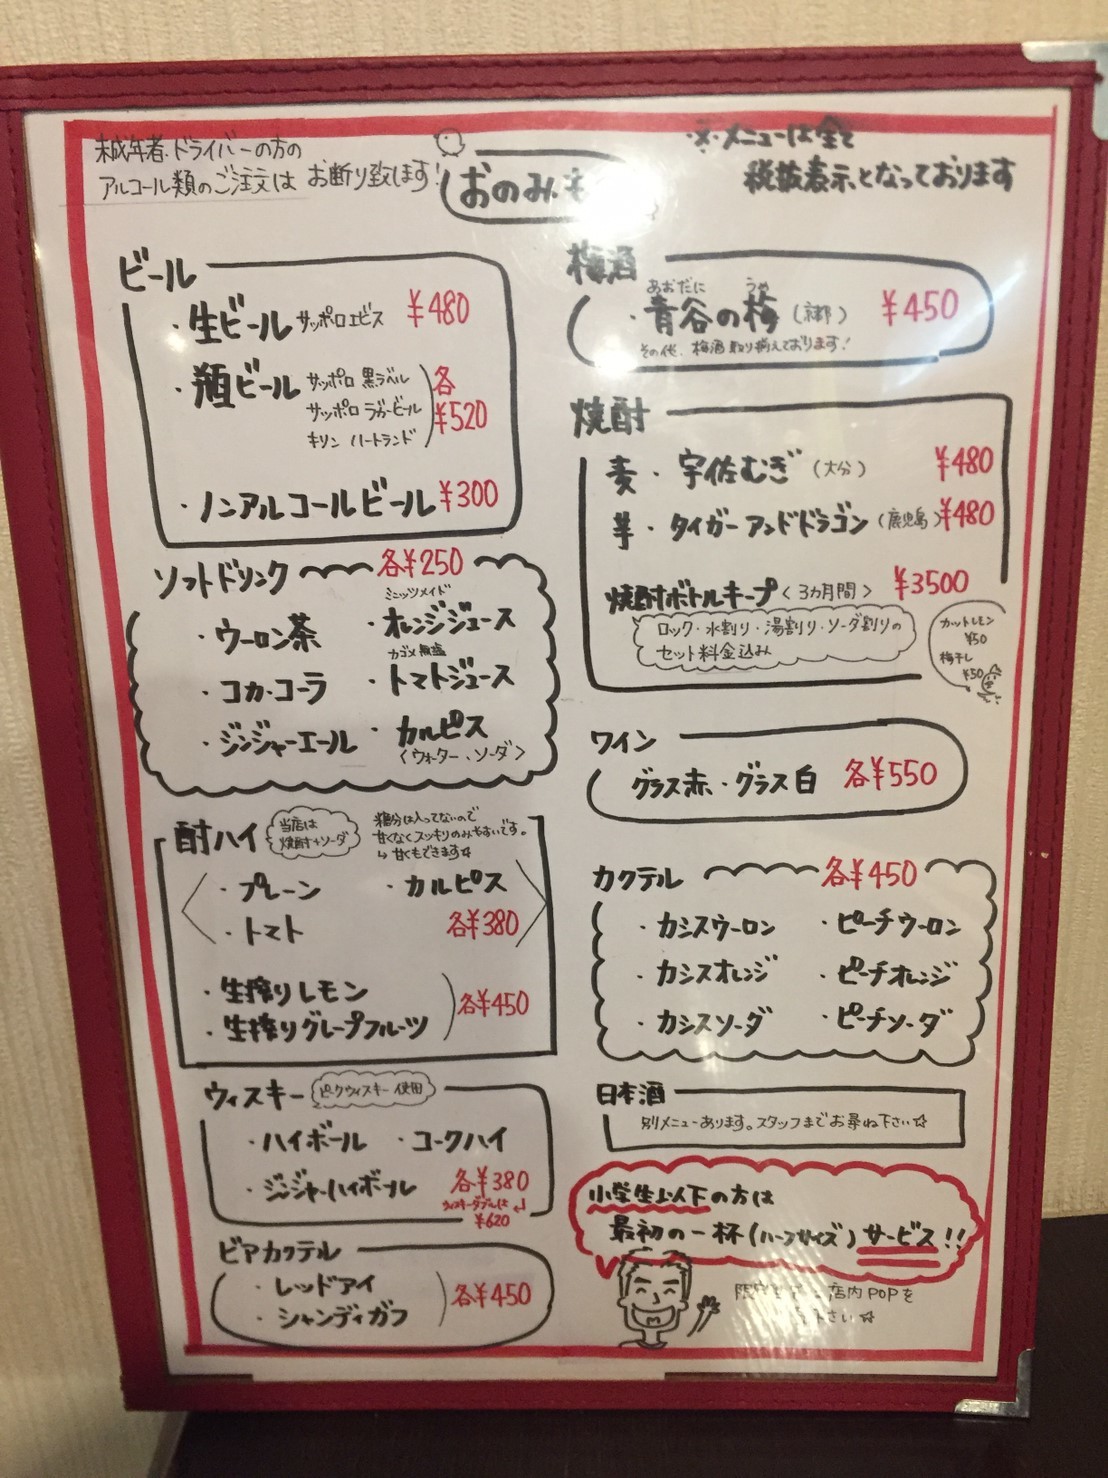 未成年者・ドライバーの方の
アルコール類のご注文は お断り致します!
おのみ
・※・メニューは全て
税抜表示となっております
ビール
・生ビール サッポロエビス ¥480
・瓶ビール サッポロ 黒ラベル
サッポロ ラガービール
キリン ハートランド
各
¥520
・ノンアルコールビール ¥300
ソフトドリンク 各¥250
・ウーロン茶
・コカ・コーラ
・ジンジャーエール
ミニッツメイド
・オレンジジュース
カゴメ無塩
・トマトジュース
・カルピス
〈ウォーター・ソーダ〉
酎ハイ
当店は
焼酎+ソーダ
糖分は入ってないので
甘くなくスッキリのみやすいです。
↳甘くもできます☆
・プレーン ・カルピス
・トマト 各¥380
・生搾りレモン
・生搾りグレープフルーツ
各¥450
ウィスキー ピークウィスキー 使用
・ハイボール ・コークハイ
・ジンジャーハイボール 各¥380
ウィスキーダブルは
¥620
ビアカクテル
・レッドアイ
・シャンディガフ
各¥450
梅酒
あおだに うめ
・青谷の梅 (京都) ¥450
その他、梅酒取り揃えております!
焼酎
麦・宇佐むぎ (大分) ¥480
芋・タイガーアンドドラゴン (鹿児島) ¥480
焼酎ボトルキープ〈3カ月間〉 ¥3500
ロック・水割り・湯割り・ソーダ割りの
セット料金込み
カットレモン
¥50
梅干し
¥50
ワイン
グラス赤・グラス白 各¥550
カクテル 各¥450
・カシスウーロン ・ピーチウーロン
・カシスオレンジ ・ピーチオレンジ
・カシスソーダ ・ピーチソーダ
日本酒
別メニューあります。スタッフまでお尋ね下さい☆
小学生以下の方は
最初の一杯(ハーフサイズ)サービス!!
店内POPを
下さい☆